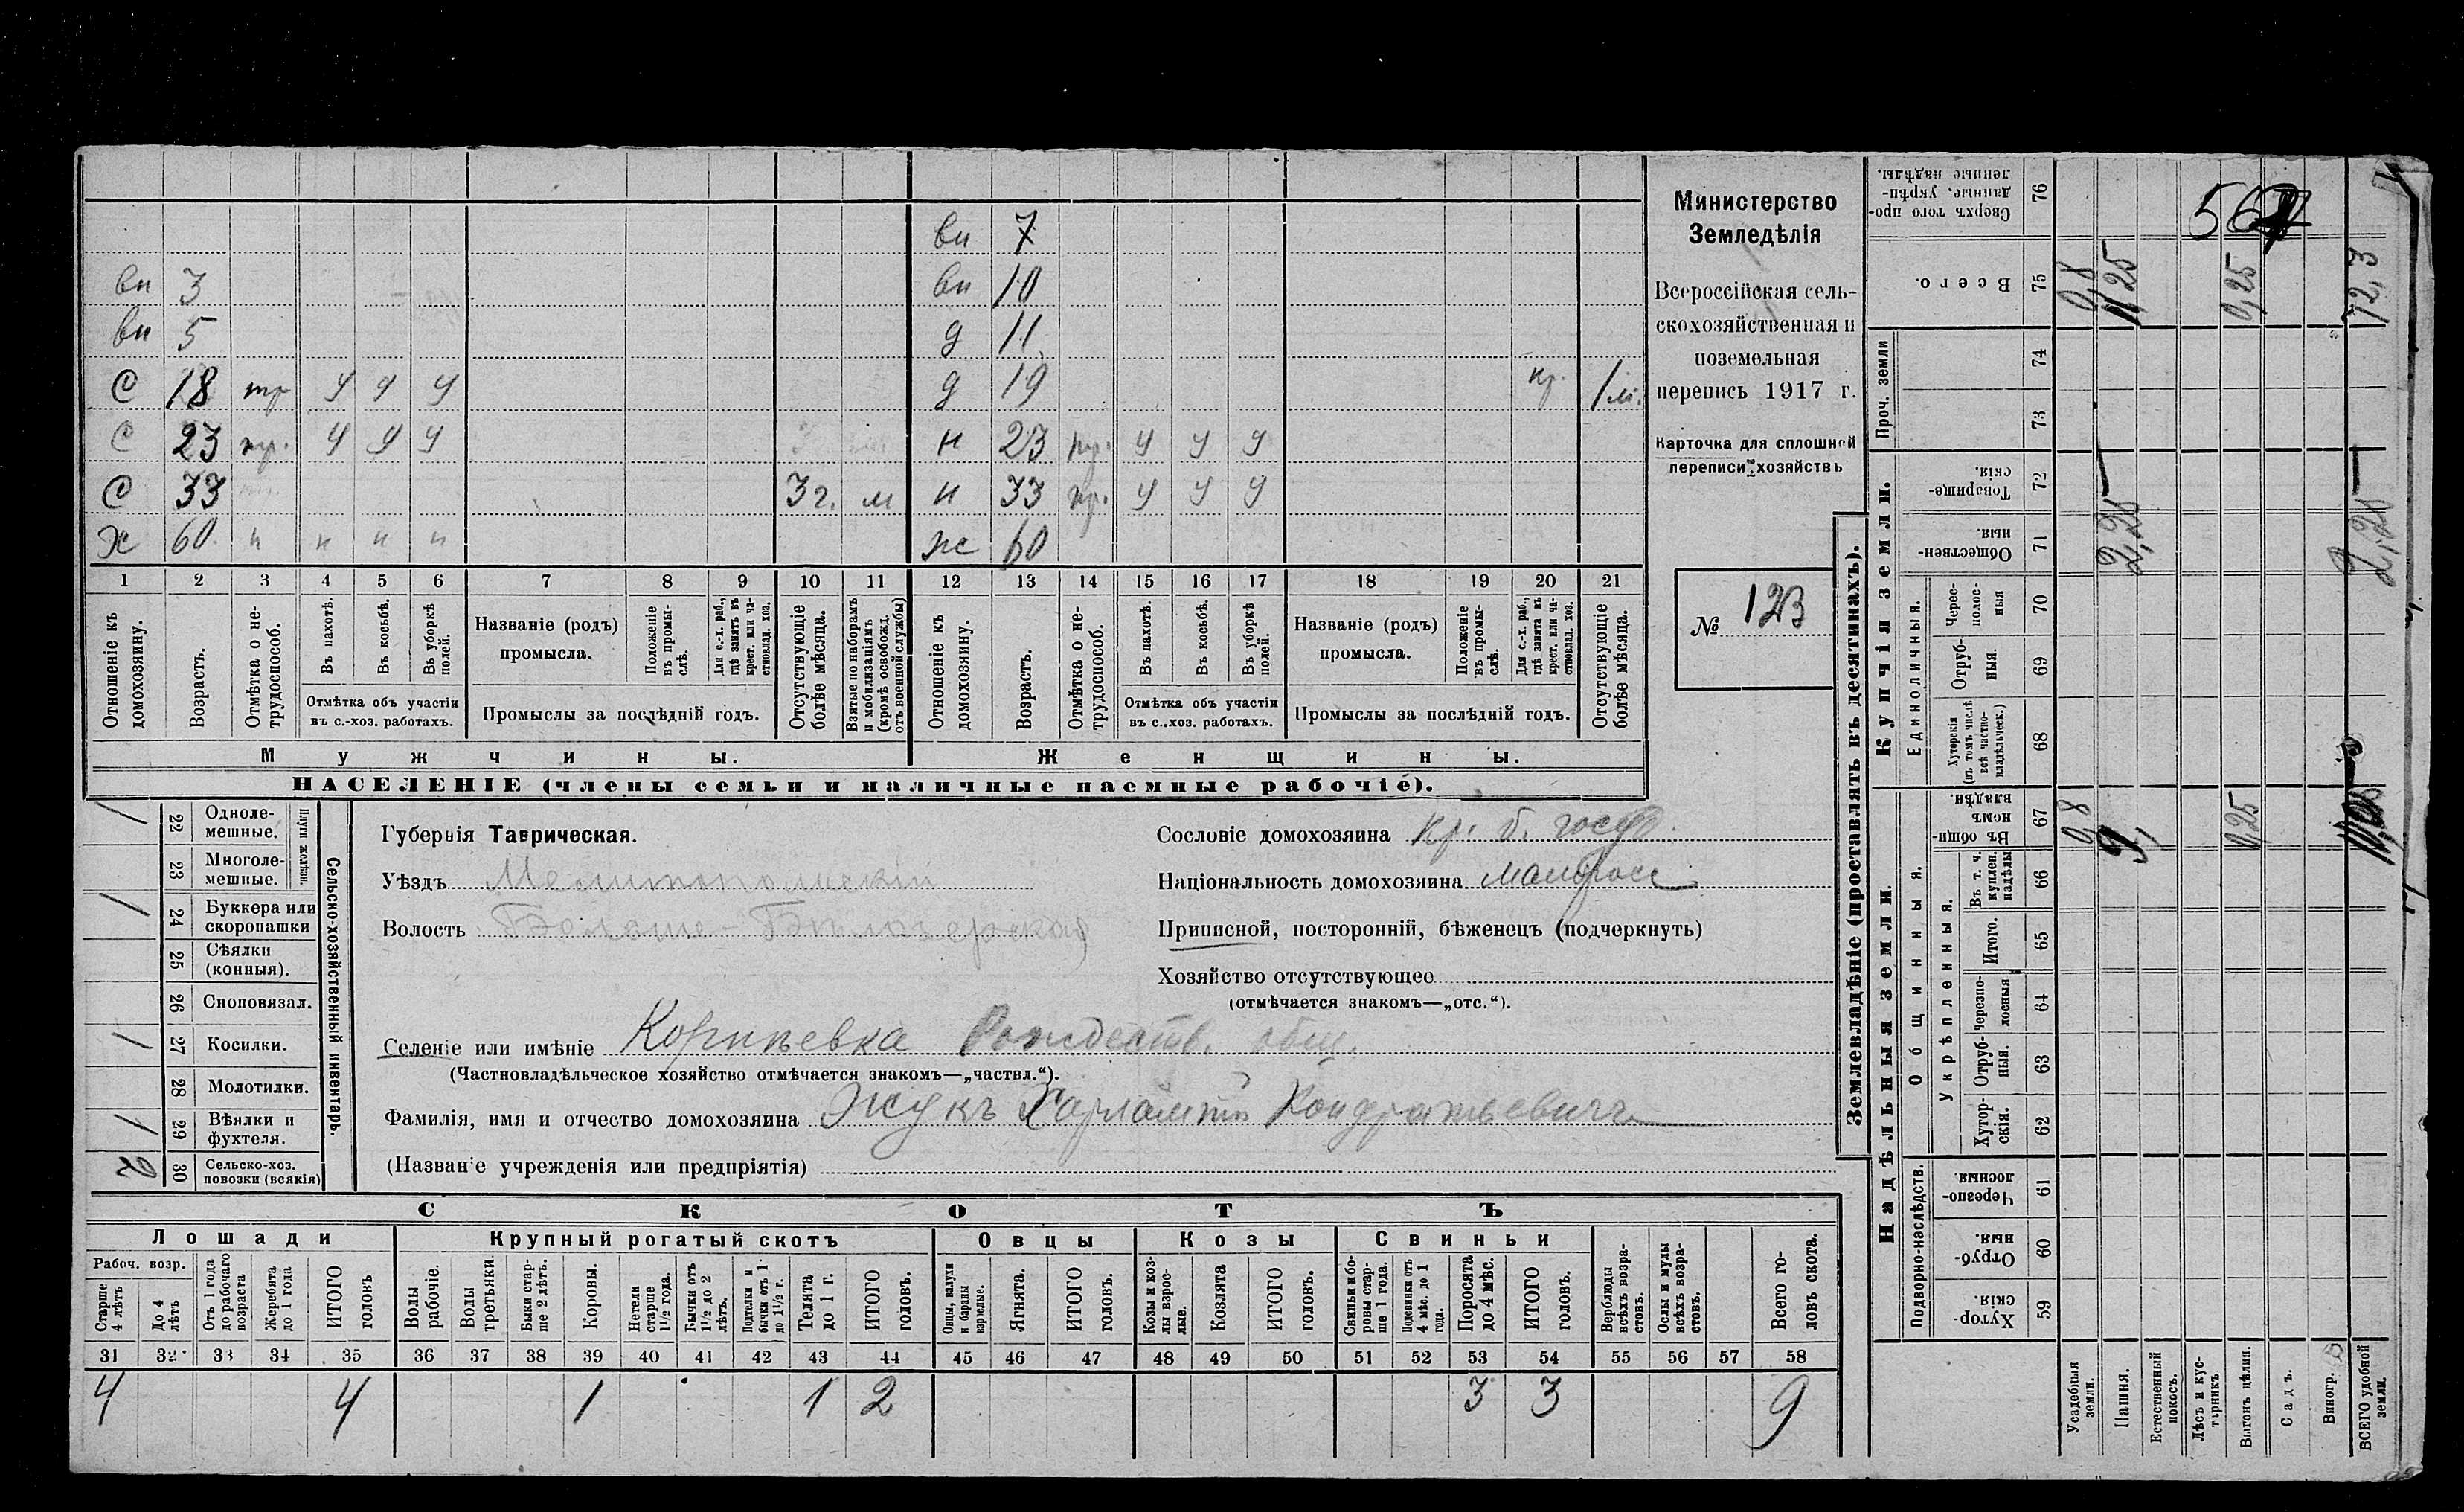 вн 7
вн 3 вн 10
вн 5 д 11
С 18 тр У У У д 19 кр. 1 м.
С 23 тр. У У У н 23 пр. У У У
С 33 3 г. м н 33 пр. У У У
Х 60 н н н н ж 60
1 2 3 4 5 6 7 8 9 10 11 12 13 14 15 16 17 18 19 20 21
Отношеніе къ домохозяину.
Возрастъ.
Отмѣтка о нетрудоспособ.
Въ пахотѣ.
Въ косьбѣ.
Въ уборкѣ полей.
Отмѣтка объ участіи въ с.-хоз. работахъ.
Названіе (родъ) промысла.
Положеніе въ промыслѣ.
Для с.-х. раб., гдѣ занятъ въ крест. или частновлад. хоз.
Промыслы за послѣдній годъ.
Отсутствующіе болѣе мѣсяца.
Взятые по наборамъ и мобилизаціямъ (кромѣ освобожд. отъ военной службы)
Отношеніе къ домохозяину.
Возрастъ.
Отмѣтка о нетрудоспособ.
Въ пахотѣ.
Въ косьбѣ.
Въ уборкѣ полей.
Отмѣтка объ участіи въ с.-хоз. работахъ.
Названіе (родъ) промысла.
Положеніе въ промыслѣ.
Для с.-х. раб., гдѣ занята въ крест. или частновлад. хоз.
Промыслы за послѣдній годъ.
Отсутствующіе болѣе мѣсяца.
Мужчины. Женщины.
НАСЕЛЕНІЕ (члены семьи и наличные наемные рабочіе).
Министерство
Земледѣлія
Всероссійская сель-
скохозяйственная и
поземельная
перепись 1917 г.
Карточка для сплошной
переписи хозяйствъ
№ 123
Сельско-хозяйственный инвентарь.
Плуги желѣзн.
22 Одноле-мешные. 1
23 Многоле-мешные.
24 Буккера или скоропашки 1
25 Сѣялки (конныя).
26 Сноповязал.
27 Косилки. 1
28 Молотилки.
29 Вѣялки и фухтеля. 1
30 Сельско-хоз. повозки (всякія) 2
Губернія Таврическая.
Уѣздъ Мелитопольскій
Волость Больше-Бѣлозерская
Сословіе домохозяина кр. б. госуд.
Національность домохозяина малоросс
Приписной, посторонній, бѣженецъ (подчеркнуть)
Хозяйство отсутствующее
(отмѣчается знакомъ—„отс.“).
Селеніе или имѣніе Корнѣевка Рождеств. общ.
(Частновладѣльческое хозяйство отмѣчается знакомъ—„частвл.“).
Фамилія, имя и отчество домохозяина Жукъ Харлампій Кондратьевичъ
(Названіе учрежденія или предпріятія)
СКОТЪ
Лошади Крупный рогатый скотъ Овцы Козы Свиньи
Рабоч. возр.
Старше 4 лѣтъ
До 4 лѣтъ
Отъ 1 года до рабочаго возраста
Жеребята до 1 года
ИТОГО головъ
Волы рабочіе.
Волы третьяки.
Быки старше 2 лѣтъ.
Коровы.
Нетели старше 1½ года.
Бычки отъ 1½ до 2 лѣтъ.
Подтелки и бычки отъ 1 до 1½ г.
Телята до 1 г.
ИТОГО головъ.
Овцы, валухи и бараны взрослые.
Ягнята.
ИТОГО головъ.
Козы и козлы взрослые.
Козлята
ИТОГО головъ.
Свиньи и боровы старше 1 года.
Подсвинки отъ 4 мѣс. до 1 года.
Поросята до 4 мѣс.
ИТОГО головъ.
Верблюды всѣхъ возрастовъ.
Ослы и мулы всѣхъ возрастовъ.
Всего головъ скота.
31 32 33 34 35 36 37 38 39 40 41 42 43 44 45 46 47 48 49 50 51 52 53 54 55 56 57 58
4 4 1 1 2 3 3 9
Землевладѣніе (проставлять въ десятинахъ).
Надѣльныя земли.
Купчія земли.
Проч. земли
Подворно-наслѣдств.
Общинныя.
Укрѣпленныя.
Единоличныя.
59 Хуторскія.
60 Отрубныя.
61 Черезполосныя.
62 Хуторскія.
63 Отрубныя.
64 Черезполосныя
65 Итого.
66 Въ т. ч. куплен. надѣлы
67 Въ общинномъ владѣн.
68 Хуторскія (въ томъ числѣ всѣ частновладѣльческ.)
69 Отрубныя.
70 Чересполосныя
71 Общественныя
72 Товарищескія.
73
74
75 Всего.
76 Сверхъ того проданные, укрѣпленные надѣлы.
Усадебныя земли.
Пашня.
Естественный покосъ.
Лѣсъ и кустарникъ.
Выгонъ цѣлин.
Садъ.
Виногр.
ВСЕГО удобной земли.
0,8 9, 0,25
2,25 2,25
0,8 11,25 0,25 12,3